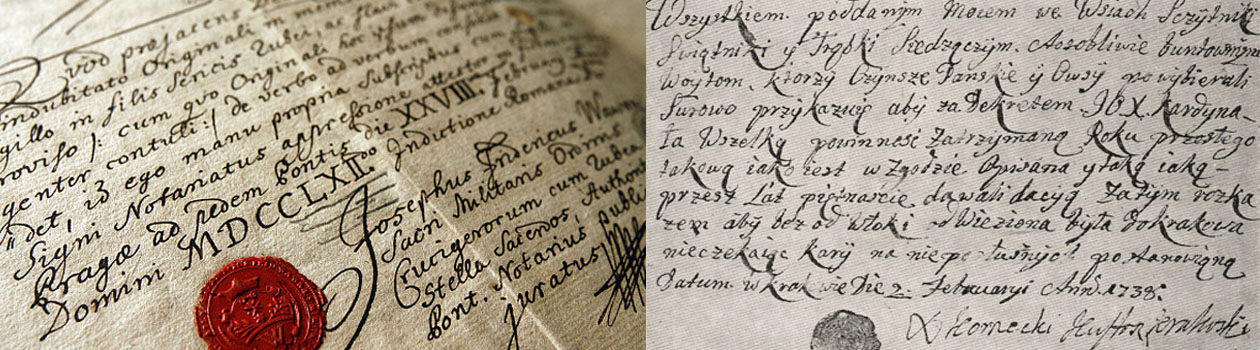 vod præjacens
indubitato Originali
gillo in filis sericis Rubr
roviso ): cum suo Originali hoc
genter contuli :/ de verbo ad verbum
det, id ego manu propria Subscriptus
Signi Notariatus appressione attestor
Pragæ ad ædem Pontis die XXVIII.
Domini MDCCLXII. Indictione Romana
Josephus Indenicus
Sacri Militaris Ordinis
Crucigerorum cum Rubea
Stella Sacerdos, Authori
Pont. Notarius Publi
juratus
Wszystkiem poddanym Moiem we Wsiach Szczytniki
Swiątniki y Trąbki Siedzączym. Aosobliwie buntownym
Woytom, ktorzy Czynsze Panskie y Owsy powybierali
Surowo przykazuię aby za Dekretem J O X Kardyna-
ła Wszelką powinnosc Zatrzymaną Roku przeszłego
takową iako iest w Zgodzie Opisana y taką iaką-
przesz Lat piętnascie dawali dacyą Zatym rozka
zem aby bez odwłoki Zwieziona była do krakowa
nieczekaiąc kary na nieposłusznych postanowioną
Datum w krakowie Die 2. Februaryi Ann. 1738.
X Łomecki